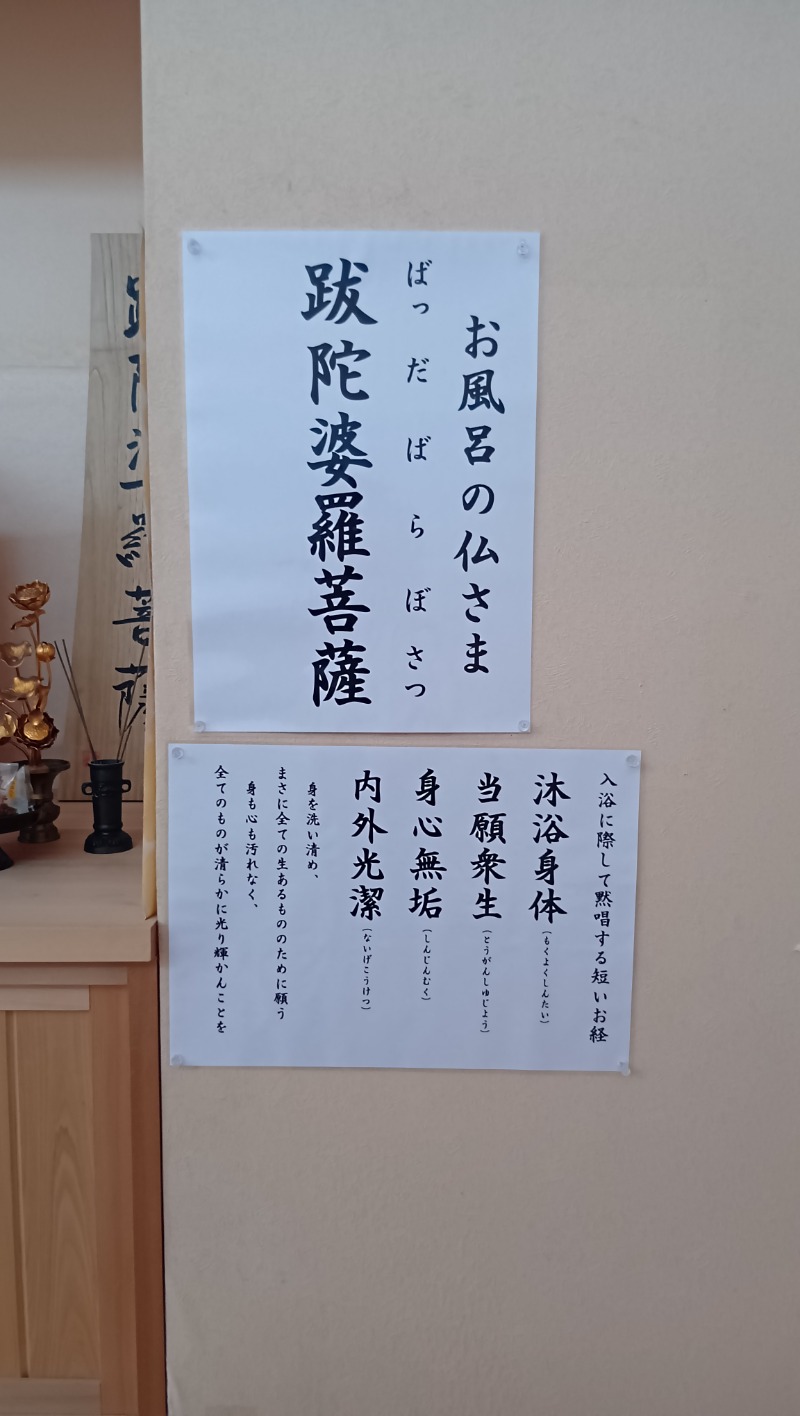 お風呂の仏さま
ばっだばらぼさつ
跋陀婆羅菩薩
入浴に際して黙唱する短いお経
沐浴身体(もくよくしんたい)
当願衆生(とうがんしゅじょう)
身心無垢(しんじんむく)
内外光潔(ないげこうけつ)
身を洗い清め、
まさに全ての生あるもののために願う
身も心も汚れなく、
全てのものが清らかに光り輝かんことを